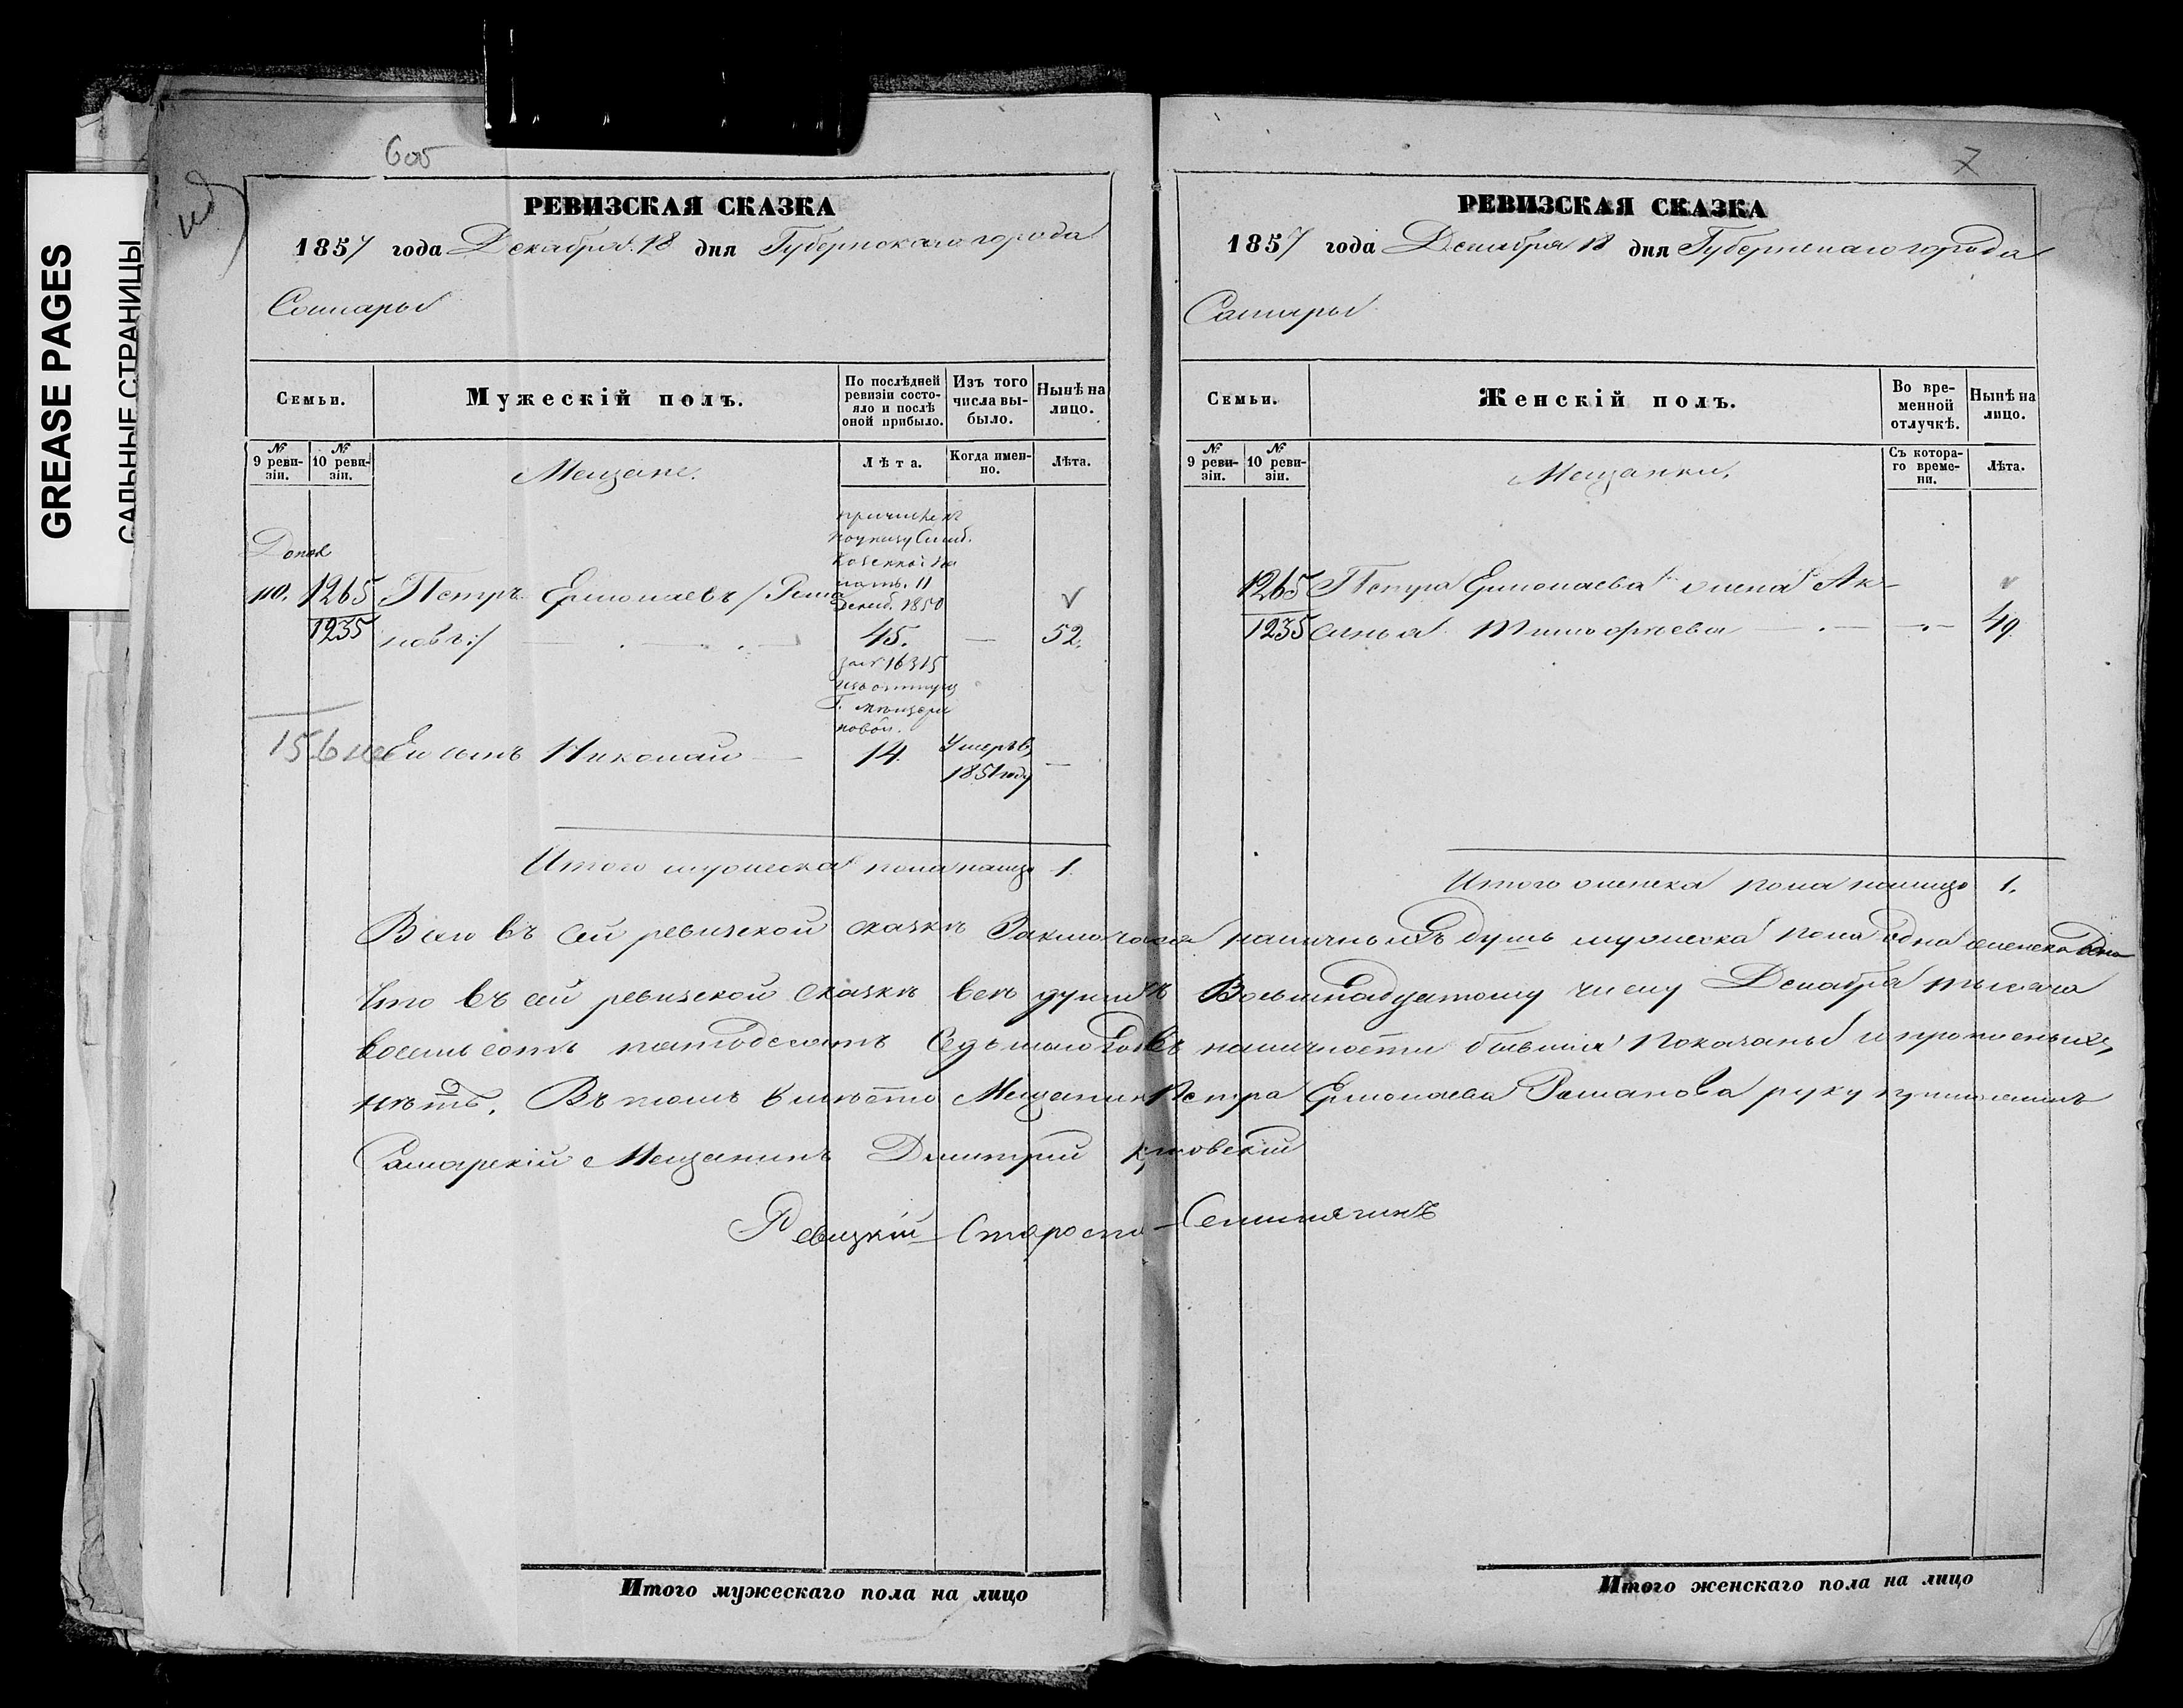 GREASE PAGES
САЛЬНЫЕ СТРАНИЦЫ
605
РЕВИЗСКАЯ СКАЗКА
1857 года Декабря 18 дня Губернскаго города
Самары
Семьи.
Мужескій полъ.
По послѣдней ревизіи состо-
яло и послѣ оной прибыло.
Изъ того числа вы-
было.
Нынѣ на лицо.
№ 9 реви-
зіи.
№ 10 реви-
зіи.
Мещане.
Лѣта.
Когда имен-
но.
Лѣта.
причисленъ
по указу Симб.
Казенной Па
латы. 11
Декаб. 1850
1265 Петръ Ермолаевъ /: Рома
1235 новъ :/ 45. — 52.
156
Ево сынъ Николай — 14. Умеръ въ 1851 году —
Итого мужеска пола налицо 1.
7
РЕВИЗСКАЯ СКАЗКА
1857 года Декабря 18 дня Губернскаго города
Самары
Семьи.
Женскій полъ.
Во вре-
менной
отлучкѣ.
Нынѣ на
лицо.
№ 9 реви-
зіи.
№ 10 реви-
зіи.
Мещанки.
Съ котора-
го време-
ни.
Лѣта.
1265 Петра Ермолаева жена Ак-
1235 синья Тимофѣева 49
Итого женска пола налицо 1.
Всего въ сей ревизской сказкѣ Заключается наличныхъ душъ мужеска пола одна женска одна
Что въ сей ревизской сказкѣ всѣ души къ Восьмнадцатому числу Декабря тысяча
восемьсотъ пятьдесятъ Седьмаго года въ наличности бывшія Показаны и прописныхъ
нѣтъ. Въ томъ вмѣсто Мещанина Петра Ермолаева Романова руку приложилъ
Самарскій Мещанинъ Дмитрій
Ревизкій Староста
Итого мужескаго пола на лицо
Итого женскаго пола на лицо